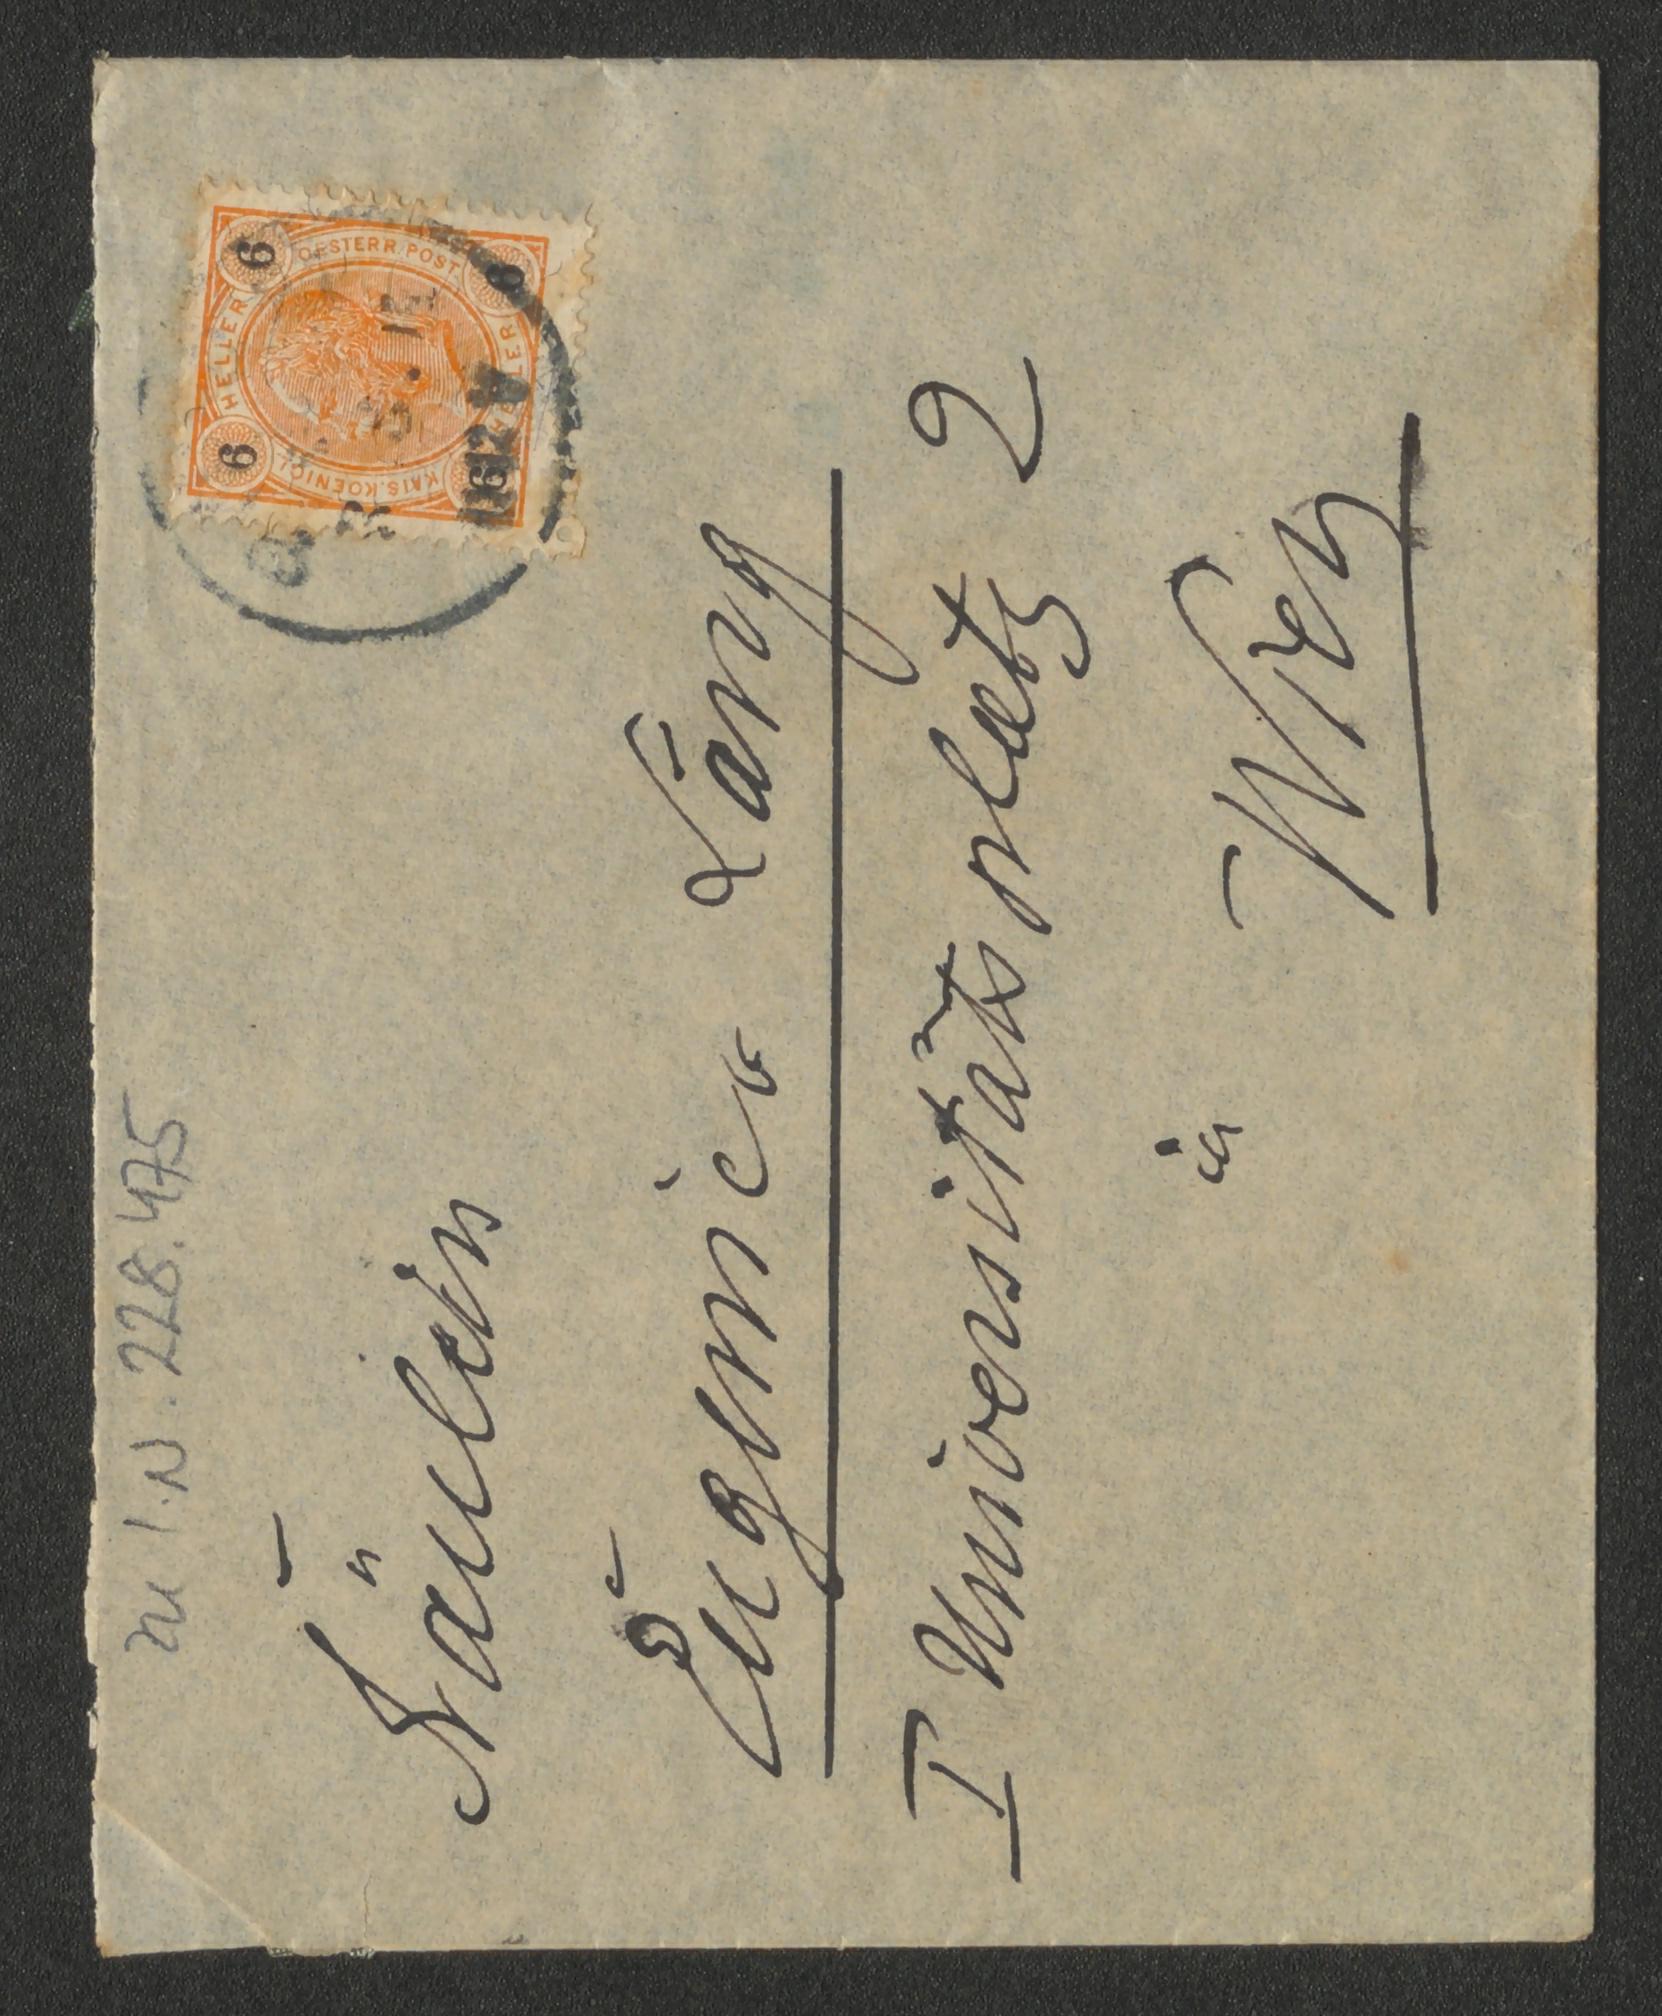 zu I.N. 228.475
OESTERR. POST.
HELLER
HELLER
KAIS. KOENIGL.
6
6
6
6
Fräulein
Eugenie Lang
I Universitätsplatz 2
in
Wien